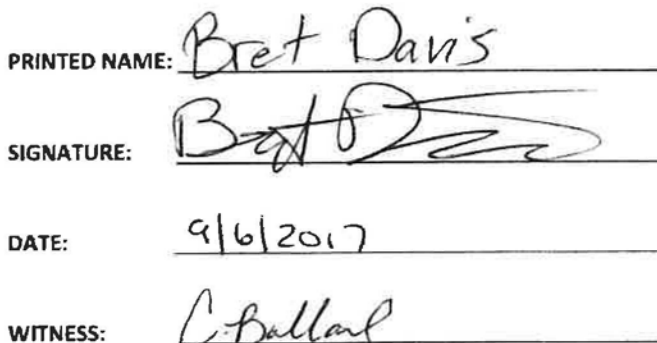 PRINTED NAME: Bret Davis
SIGNATURE: Bret D
DATE: 9/6/2017
WITNESS: C. Ballard